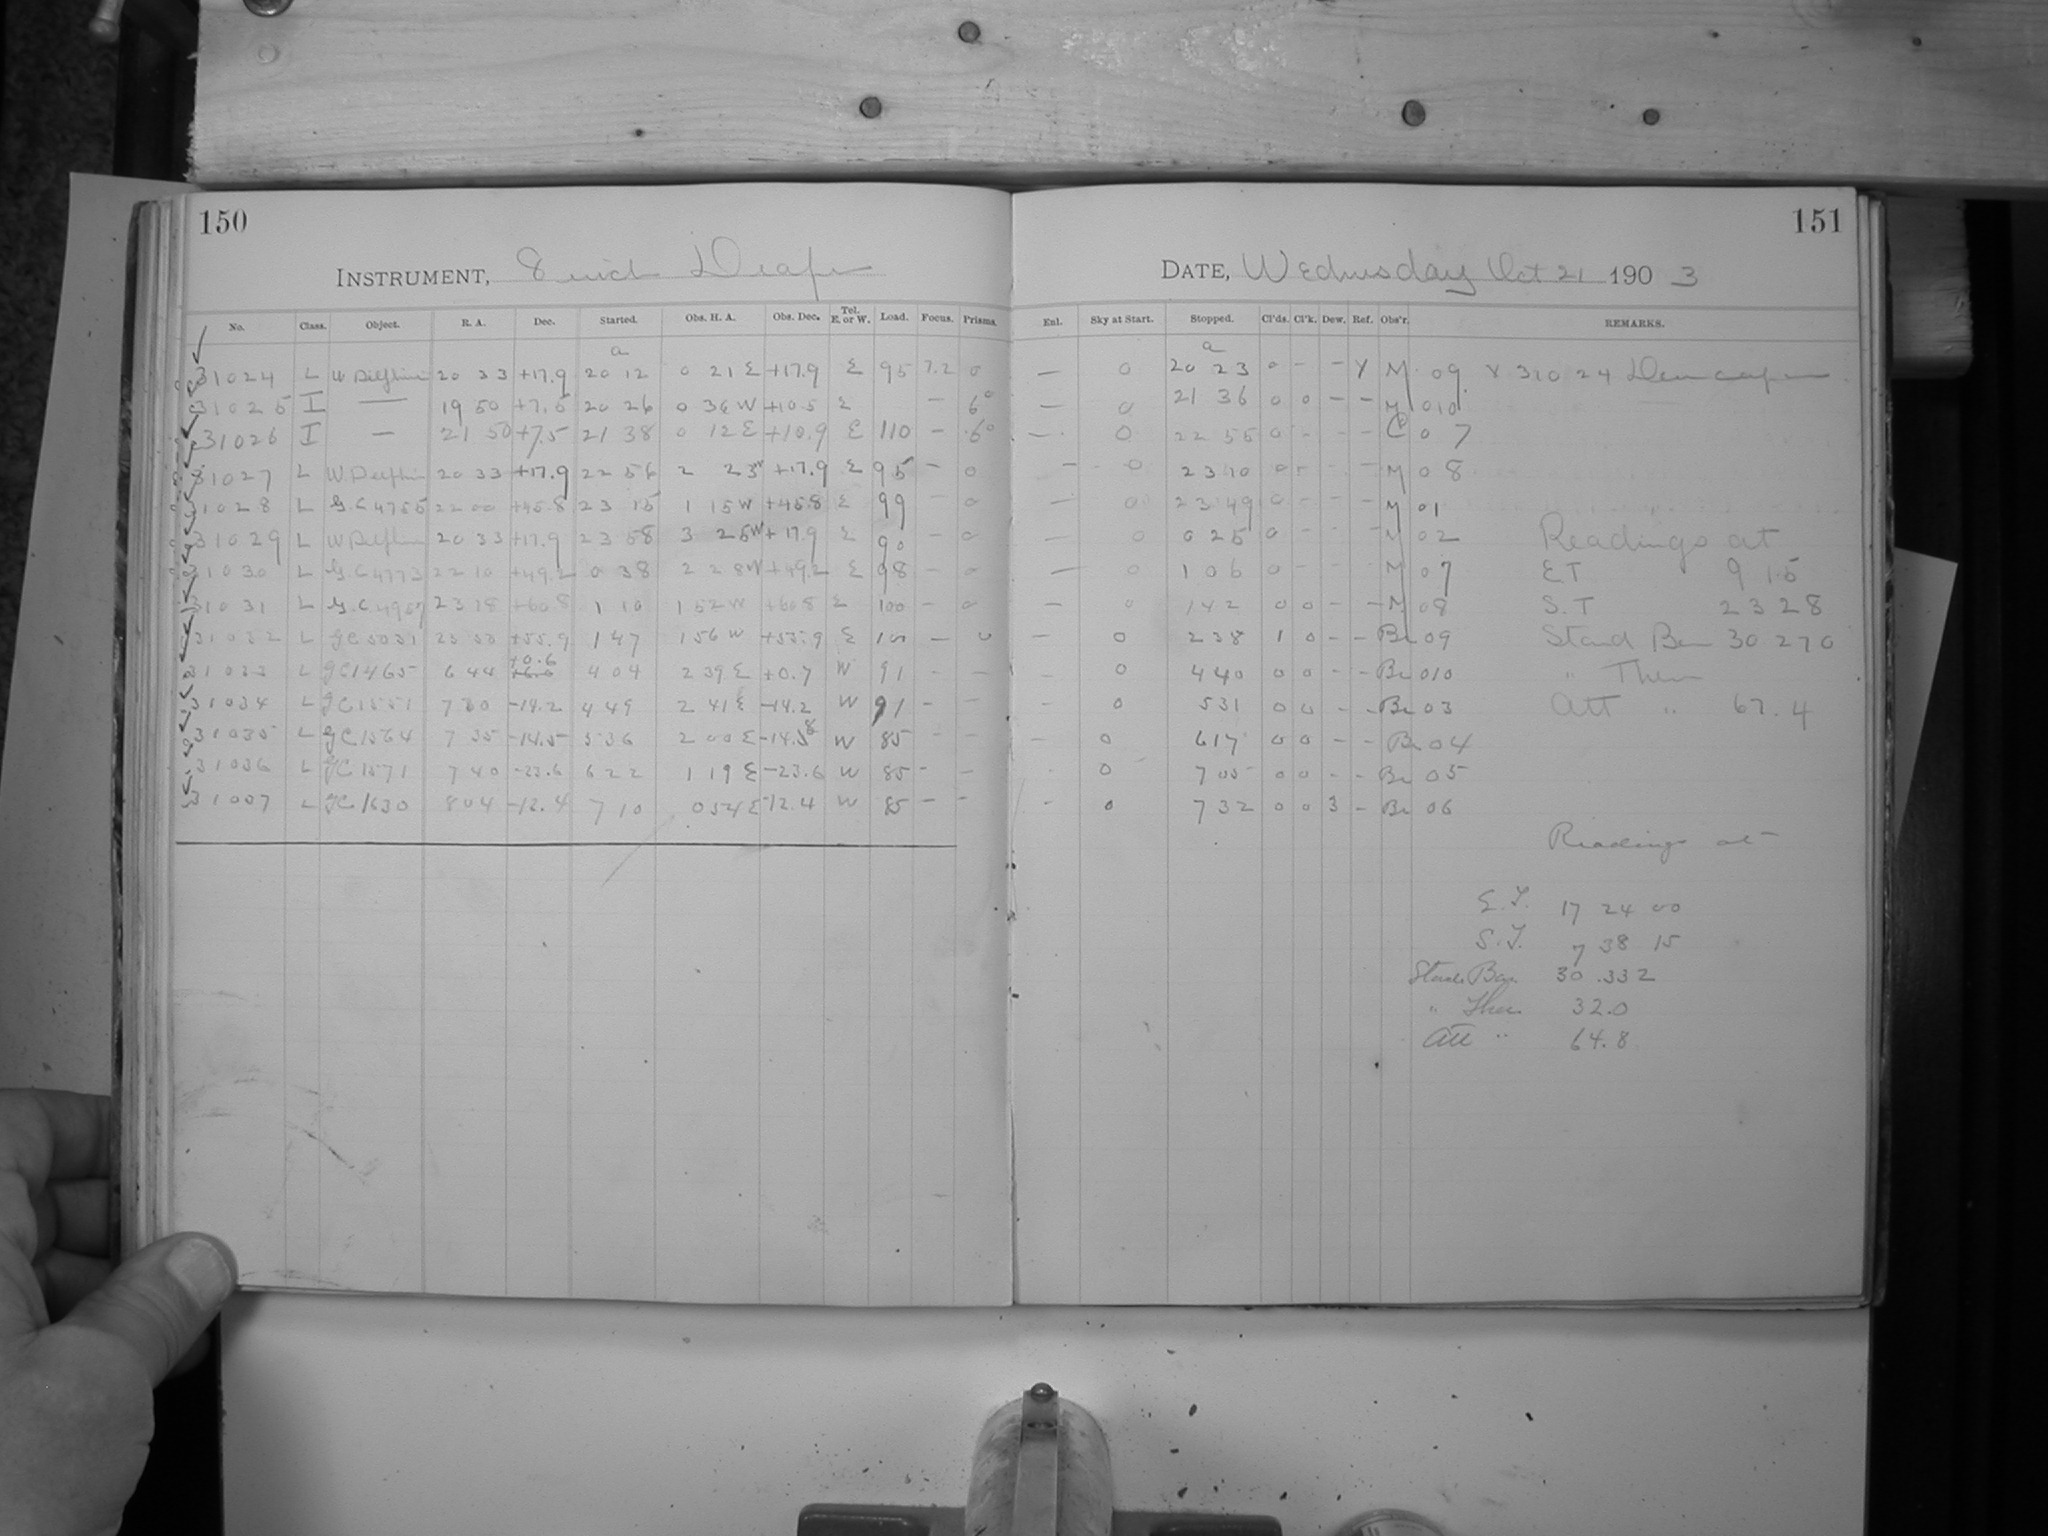 150
INSTRUMENT, 8 inch Draper
No. Class. Object. R. A. Dec. Started. Obs. H. A. Obs. Dec. Tel. E. or W. Load. Focus. Prisms.
a
31024 L W Delphini 20 33 +17.9 20 12 0 21 E +17.9 E 95 7.2 0
31025 I — 19 50 +7.5 20 26 0 36 W +10.5 E – 6°
31026 I — 21 50 +7.5 21 38 0 12 E +10.9 E 110 – 6°
31027 L W. Delphini 20 33 +17.9 22 56 2 23 W +17.9 E 95 – 0
31028 L G.C 4755 22 00 +45.8 23 15 1 15 W +45.8 E 99 – 0
31029 L W Delphini 20 33 +17.9 23 58 3 25 W +17.9 E 90 – 0
31030 L G.C 4773 22 10 +49.2 0 38 2 28 W +49.2 E 98 – 0
31031 L G.C 4967 23 18 +60.8 1 10 1 52 W +60.8 E 100 – 0
31032 L GC 5031 +55.9 1 47 1 56 W +55.9 E – 0
+0.6
31033 L GC 1465 6 44 4 04 2 39 E +0.7 W 91 – –
31034 L GC 1551 7 30 -14.2 4 49 2 41 E -14.2 W 91 – –
31035 L GC 1564 7 35 -14.5 5 36 2 00 E W 85 – –
31036 L GC 1571 7 40 -23.6 6 22 1 19 E -23.6 W 85 – –
L GC 1630 8 04 -12.4 7 10 0 54 E -12.4 W 85 – –
151
DATE, Wednesday Oct 21 1903
Enl. Sky at Start. Stopped. Cl'ds. Cl'k. Dew. Ref. Obs'r. REMARKS.
a
— 0 20 23 0 – – Y M 09 Y 31024 Dew cap on
— 0 21 36 0 0 – – M 010
— 0 22 55 0 – – – C 07
– 0 23 10 0 – – – M 08
— 0 23 49 0 – – – M 01
0 0 25 0 – M 02 Readings at
— 0 1 06 0 – – – M 07 ET 9 15
— 0 1 42 0 0 – – M 08 S.T 23 28
— 0 2 38 1 0 – – Br 09 Stand Bar 30 270
– 0 4 40 0 0 – – Br 010 " Ther
– 0 5 31 0 0 – – Br 03 Att " 67.4
0 6 17 0 0 – – Br 04
0 7 05 0 0 – – Br 05
– 0 7 32 0 0 3 – Br 06
Readings at
E.T. 17 24 00
S.T. 7 38 15
Stand. Bar. 30.332
" Ther. 32.0
Att " 64.8